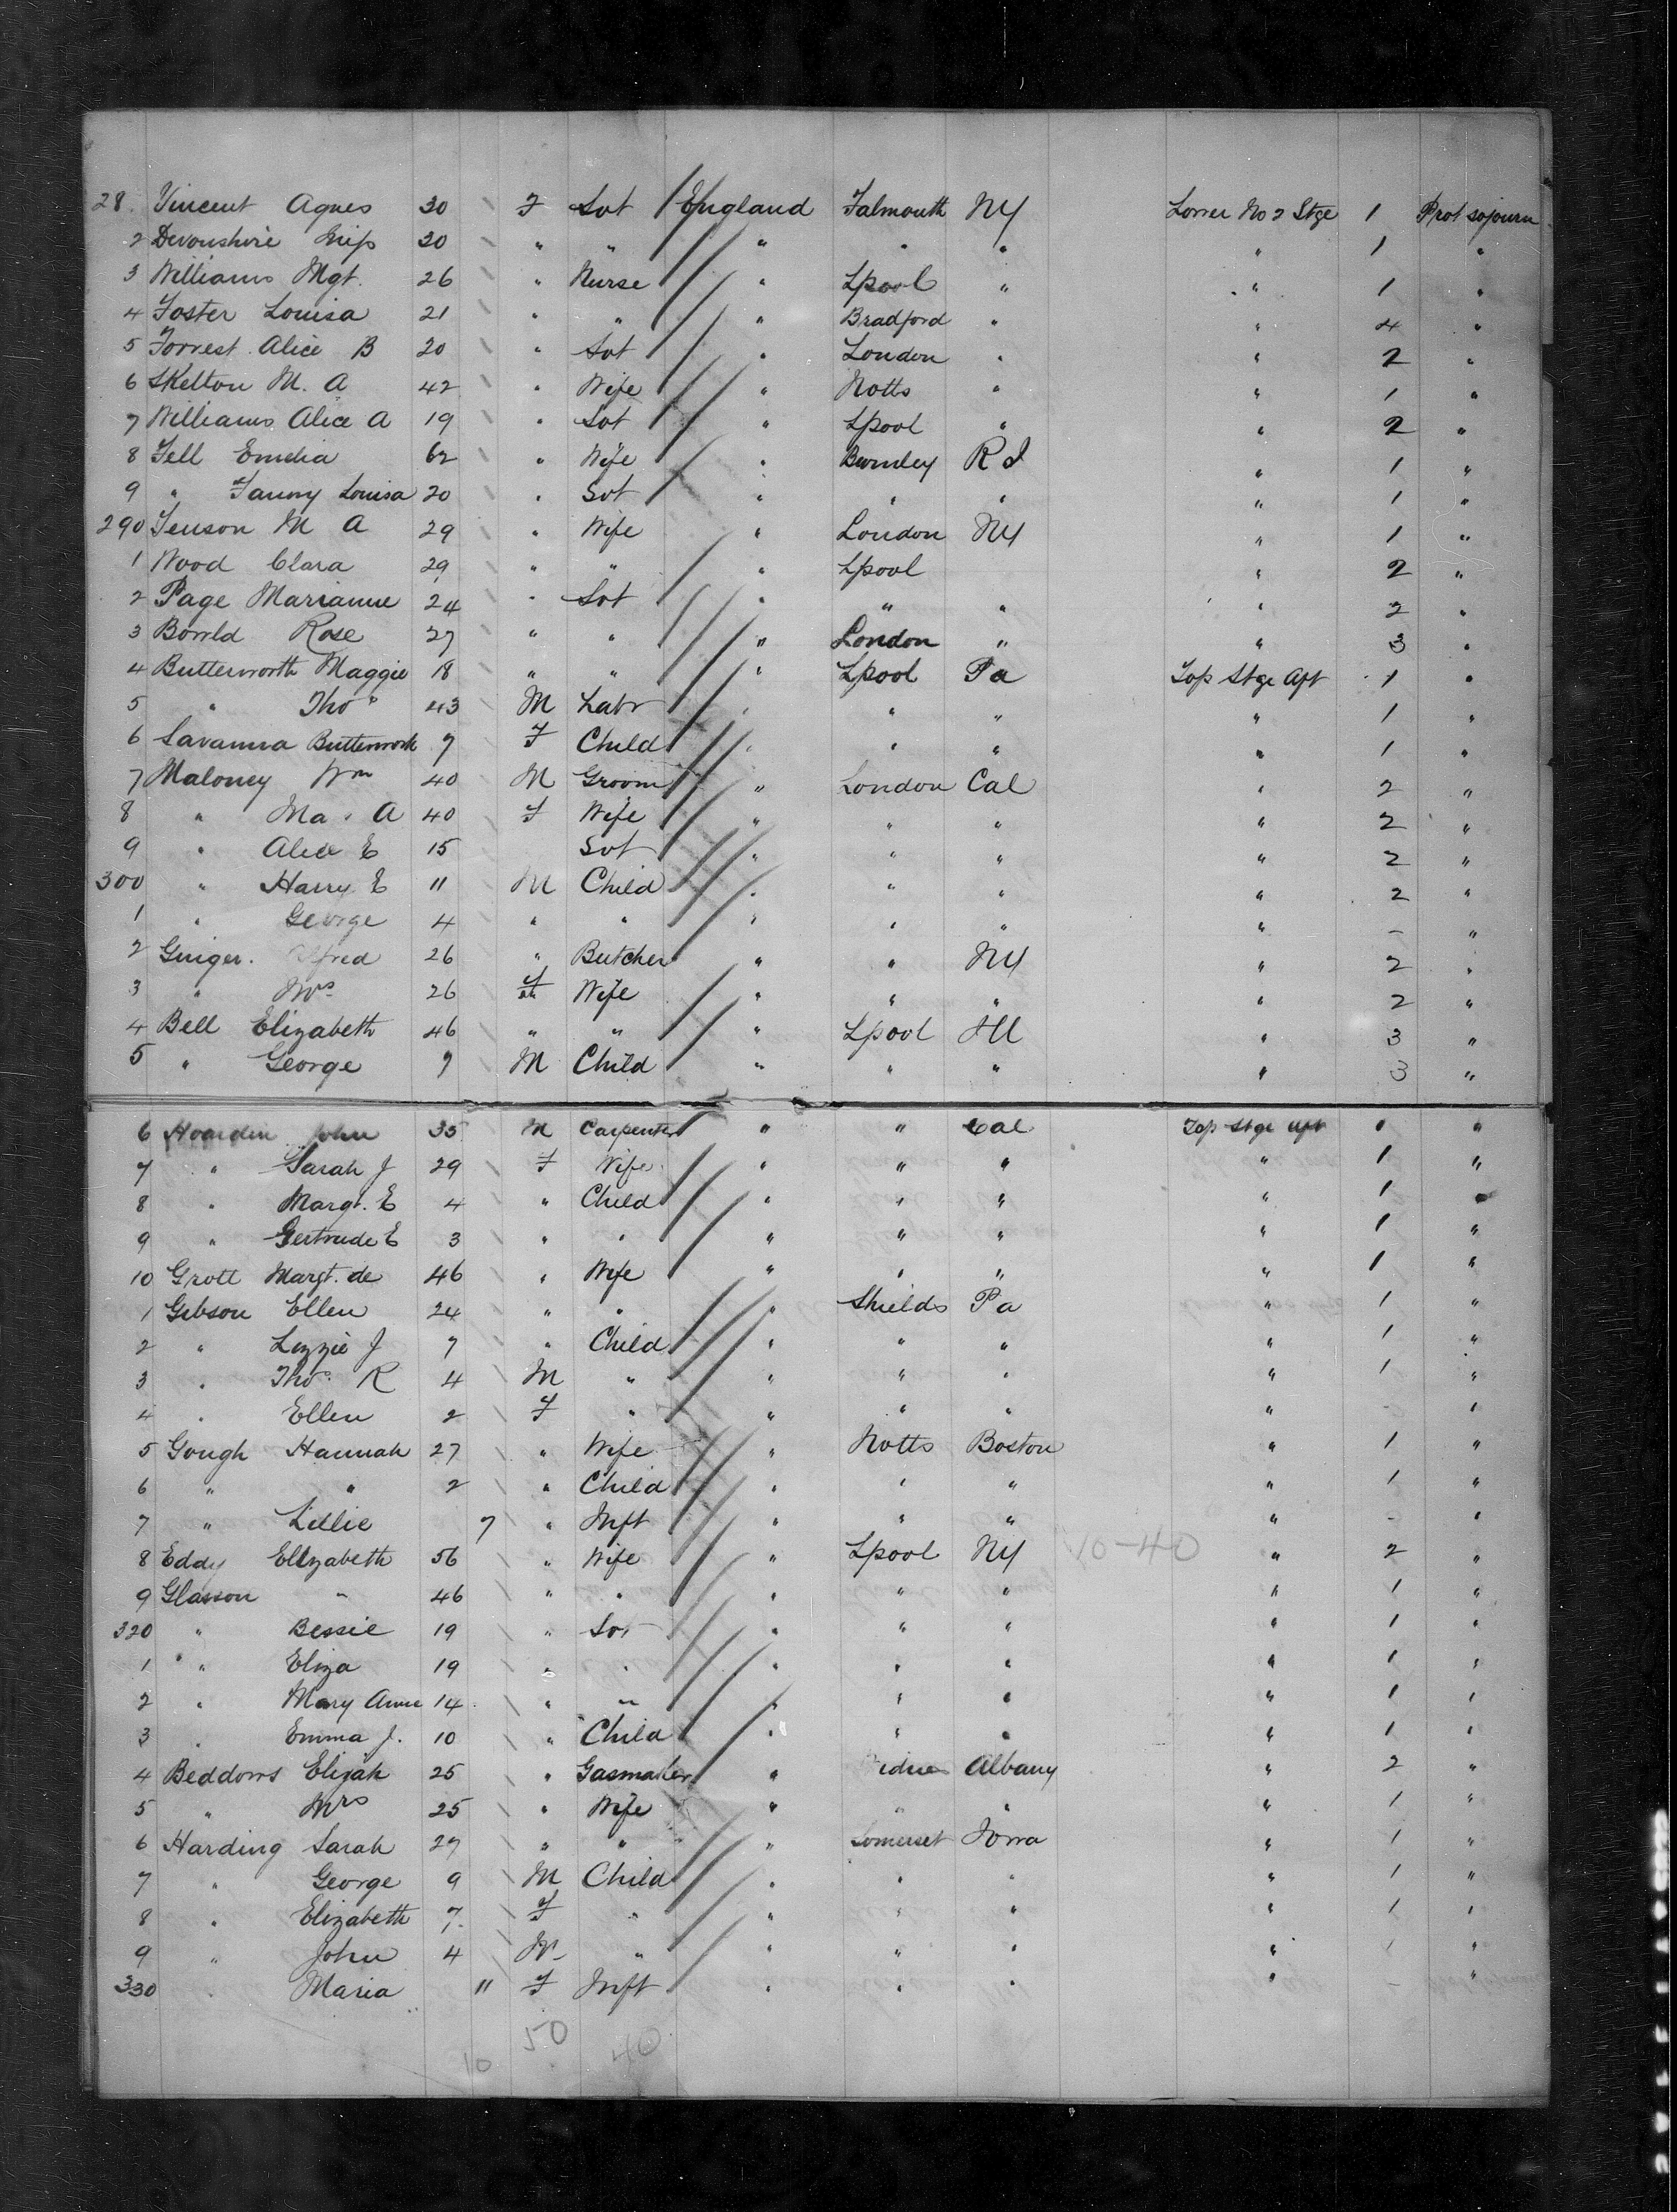 28. Vincent Agnes 30 F Svt England Falmouth NY Lower No 2 Stge 1 Prot sojourn
2 Devonshire 30 " " " " " " 1 "
3 Williams Mgt. 26 " Nurse " Lpool " " 1 "
4 Foster Louisa 21 " " " Bradford " " 4 "
5 Forrest Alice B 20 " Svt " London " " 2 "
6 Skelton M. A 42 " Wife " Notts " " 1 "
7 Williams Alice A 19 " Svt " Lpool " " 2 "
8 Fell Emelia 62 " Wife " Burnley R I " 1 "
9 " Fanny Louisa 20 " Svt " " " " 1 "
290 Jenson M A 29 " Wife " London NY " 1 "
1 Wood Clara 29 " " " Lpool " 2 "
2 Page Marianne 24 " Svt " " " " 2 "
3 Rose 27 " " " London " " 3 "
4 Butterworth Maggie 18 " " " Lpool Pa Top Stge Aft 1 "
5 " Thos 43 M Labr " " " " 1 "
6 Savanna Butterworth 7 F Child " " " " 1 "
7 Maloney Wm 40 M Groom " London Cal " 2 "
8 " Ma. A 40 F Wife " " " " 2 "
9 " Alice E 15 Svt " " " " 2 "
300 " Harry E 11 M Child " " " " 2 "
1 " George 4 " " " " " " - "
2 Ginger. Alfred 26 " Butcher " " NY " 2 "
3 " Mrs 26 F Wife " " " " 2 "
4 Bell Elizabeth 46 " " " Lpool Ill " 3 "
5 " George 7 M Child " " " " 3 "
6 Hoarden John 35 M Carpenter " " Cal Top Stge Aft 1 "
7 " Sarah J 29 F Wife " " " " 1 "
8 " Margt. E 4 " Child " " " " 1 "
9 " Gertrude E 3 " " " " " " 1 "
10 Grott Margt. de 46 " Wife " " " " 1 "
1 Gibson Ellen 24 " " " Shields Pa " 1 "
2 " Lizzie J 7 " Child " " " " 1 "
3 " Thos. R 4 M " " " " " 1 "
4 " Ellen 2 F " " " " " - "
5 Gough Hannah 27 " Wife " Notts Boston " 1 "
6 " " 2 " Child " " " " 1 "
7 " Lillie 7 " Inft " " " " - "
8 Eddy Elizabeth 56 " Wife " Lpool NY 10-40 " 2 "
9 Glasson " 46 " " " " " " 1 "
320 " Bessie 19 " Svt " " " " 1 "
1 " Eliza 19 " " " " " " 1 "
2 " Mary Anne 14 " " " " " " 1 "
3 " Emma J. 10 " Child " " " " 1 "
4 Beddows Elijah 25 " Gasmaker " Albany " 2 "
5 " Mrs 25 " Wife " " " " 1 "
6 Harding Sarah 27 " " " Somerset Iowa " 1 "
7 " George 9 M Child " " " " 1 "
8 " Elizabeth 7 F " " " " " 1 "
9 " John 4 M " " " " " 1 "
330 " Maria 11 F Inft " " " " - "
10 50 40